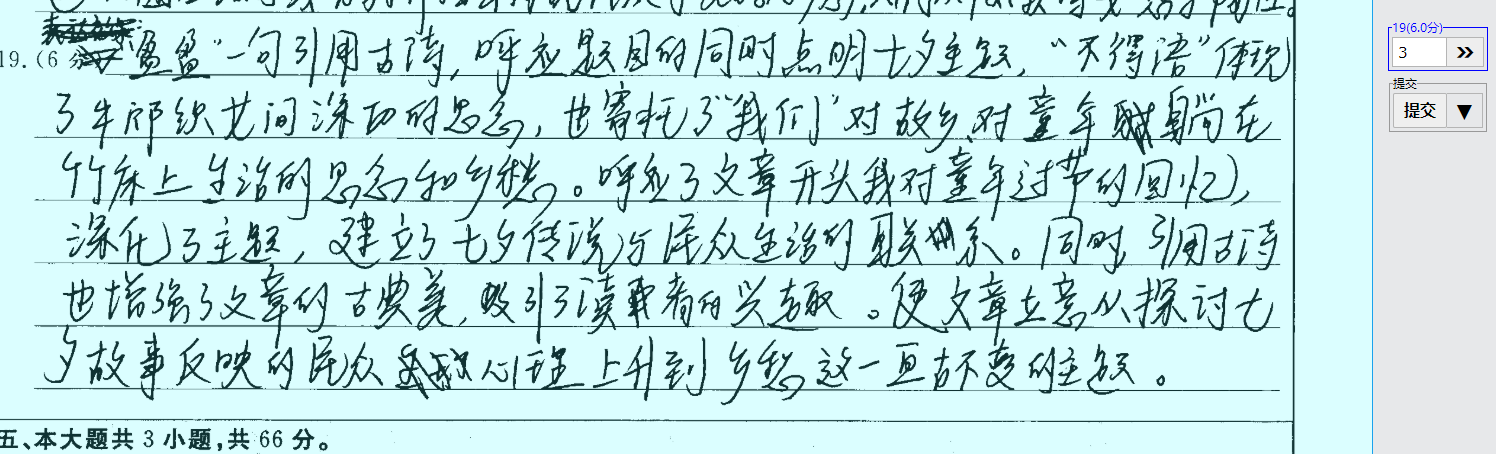 19.(6分)"盈盈"一句引用古诗,呼应题目的同时点明七夕主题,"不得语"体现
了牛郎织女间深切的思念,也寄托了"我们"对故乡、对童年躺在
竹床上生活的思念和乡愁。呼应了文章开头我对童年过节的回忆,
深化了主题,建立了七夕传说与民众生活的关系。同时引用古诗
也增强了文章的古典美,吸引了读者的兴趣。使文章立意从探讨七
夕故事反映的民众心理上升到乡愁这一亘古不变的主题。
五、本大题共 3 小题,共 66 分。
19(6.0分)
3
提交
提交